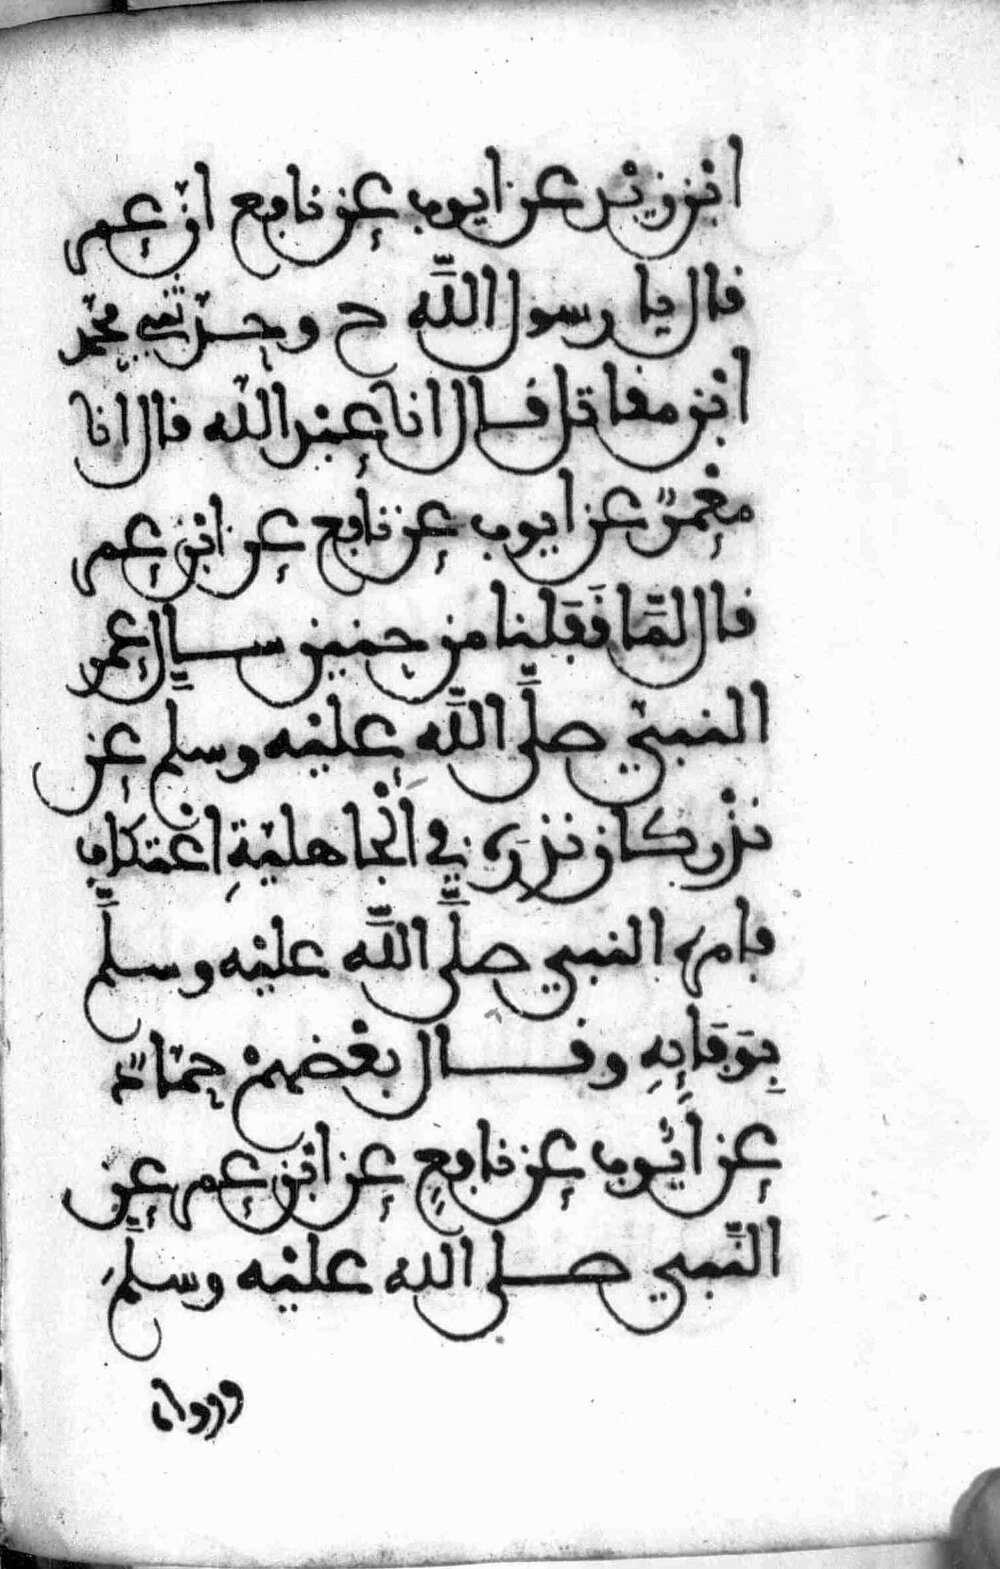 ابْن زيْد عن ايوب عن نافع انّ عمر
قال يا رسول اللَّه ح وحدّثني محمّد
ابْن مقاتل قال انا عبْد اللّه قال انا
معْمرٌ عن ايوب عن نافع عن ابْن عمر
قال لمَّا قَفَلنا من حنين سال عمر
النبيّ صلَّى اللَّه عليْه وسلَّم عن
نذْر كان نذره في الْجاهليّةِ اعْتكافٍ
فامره النبي صلَّى اللَّه عليْه وسلَّم
بِوَفَايِهِ وقال بعْضهمْ حمّادٌ
عن ايُّوب عن نافعٍ عن ابْن عمر عن
النَّبي صلى الله عليْه وسلَّم
ورواه